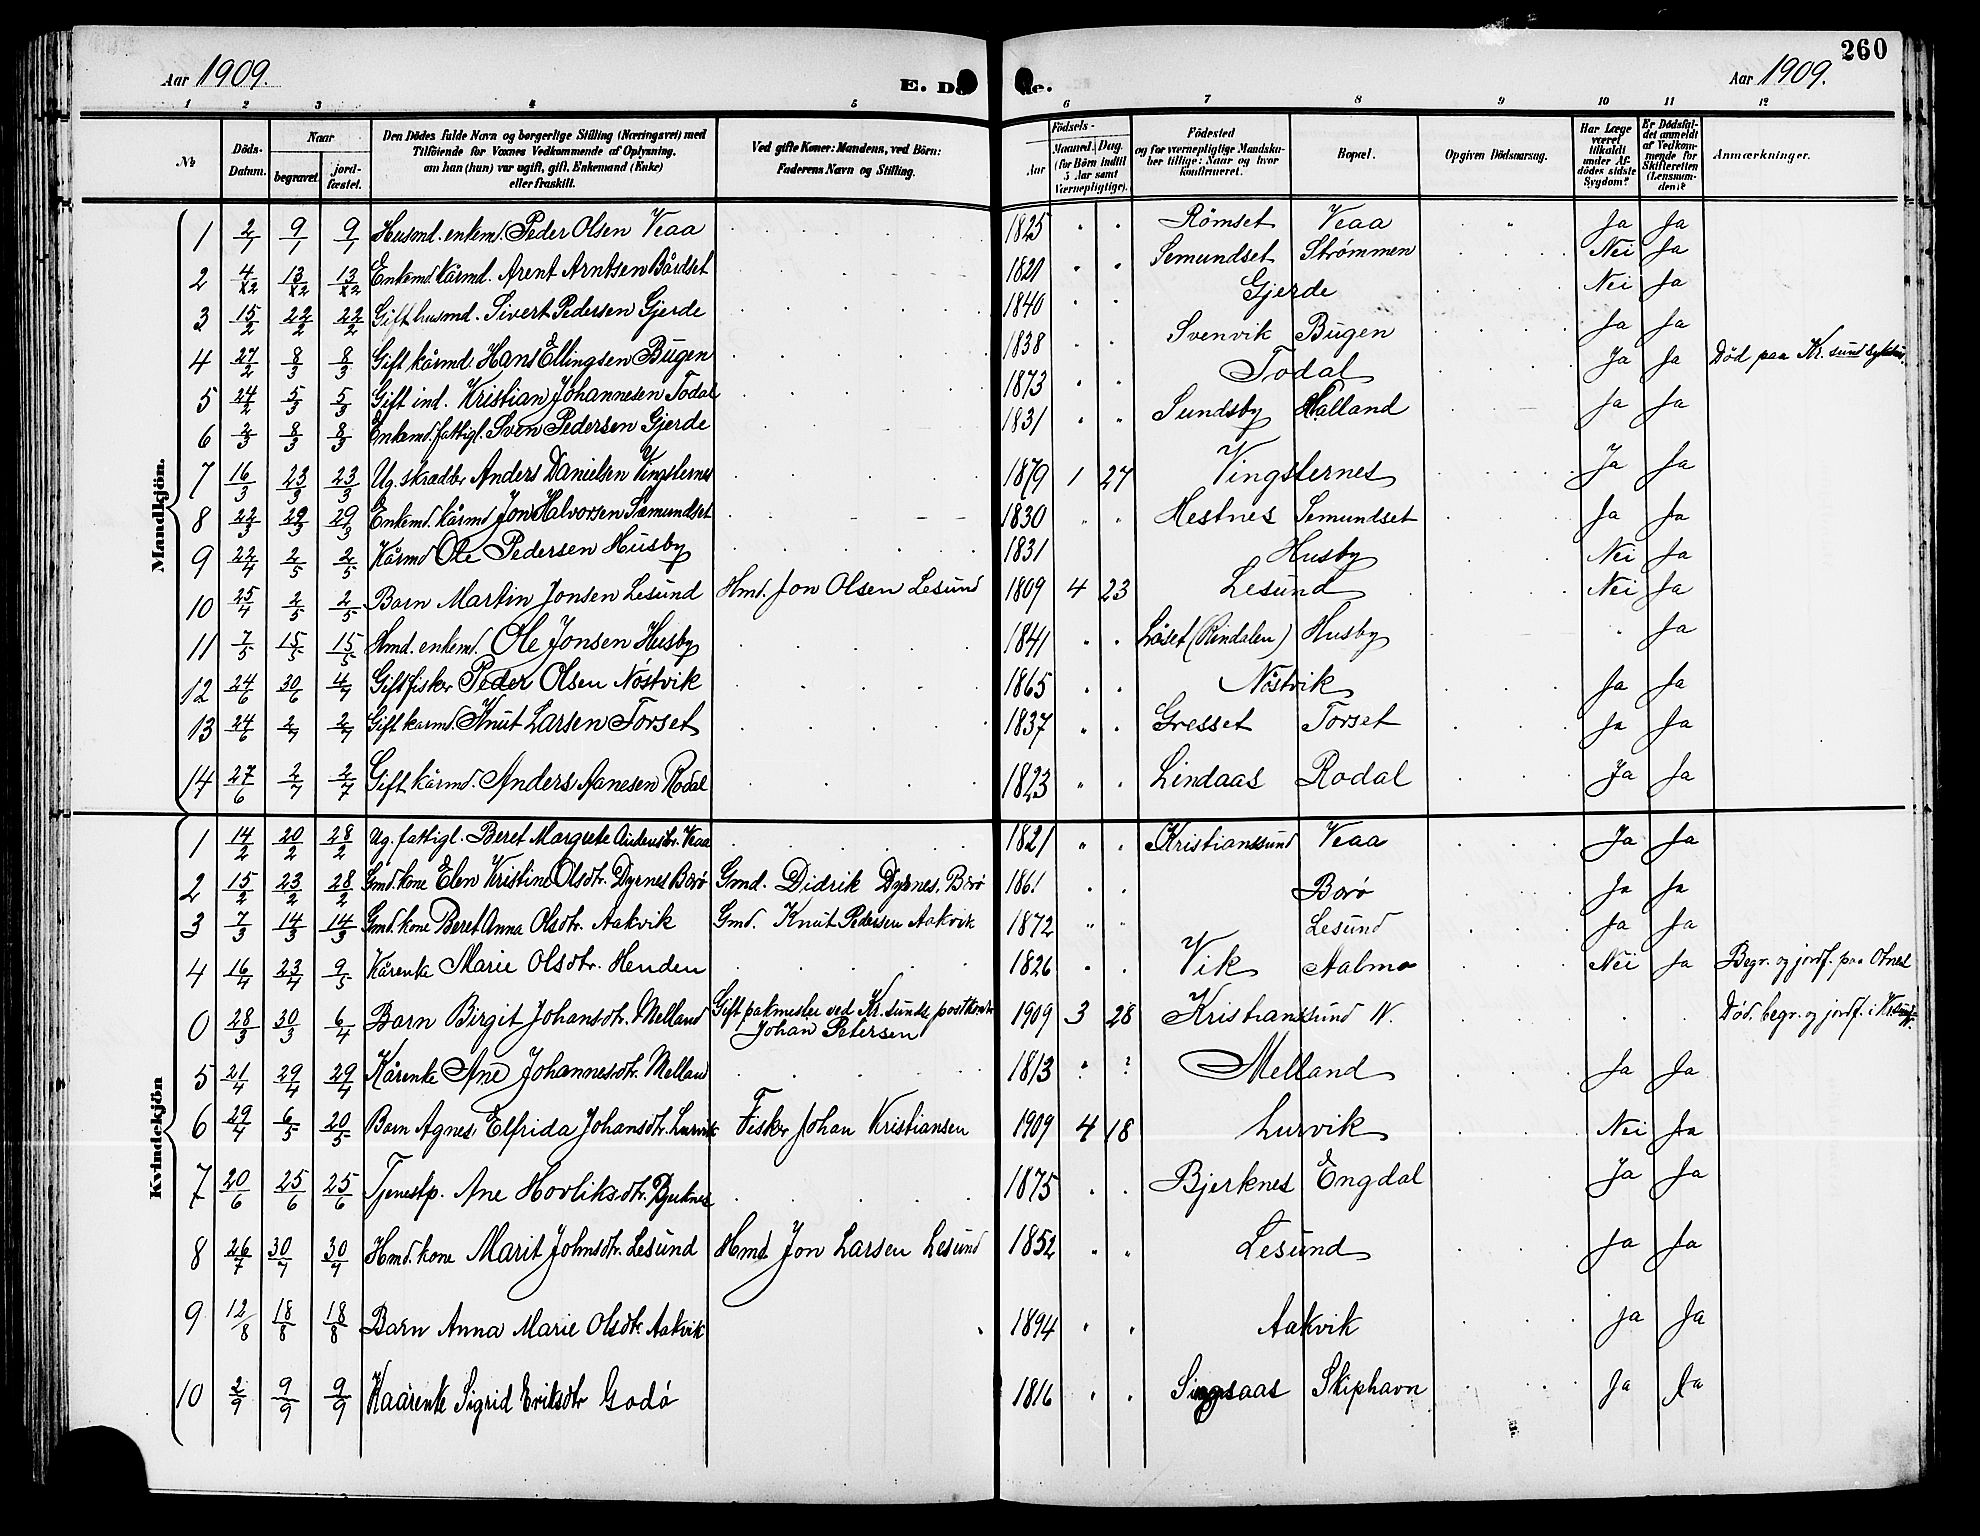 260
Aar 1909.
E. Dø de.
Aar 1909.
1 2 3 4 5 6 7 8 9 10 11 12
No
Döds-Datum.
Naar
begravet.
jord-fæstet.
Den Dödes fulde Navn og borgerlige Stilling (Næringsvei) med
Tilföiende for Voxnes Vedkommende af Oplysning,
om han (hun) var ugift, gift, Enkemand (Enke)
eller fraskilt.
Ved gifte Koner: Mandens, ved Börn:
Faderens Navn og Stilling.
Födsels-
Aar
Maaned. Dag.
(for Börn indtil
5 Aar samt
Værnepligtige).
Födested
og for værnepligtige Mandskaber tillige: Naar og hvor
konfirmeret.
Bopæl.
Opgiven Dödsaarsag.
Har Læge
været
tilkaldt
under Afdödes sidste
Sygdom?
Er Dödsfaldet anmeldt
af Vedkommende for
Skifteretten
(Lensmanden)?
Anmærkninger.
Mandkjön.
1 2/1 9/1 9/1 Husmd. enkem. Peder Olsen Veaa 1825 Römset Veaa Ja Ja
2 4/12 13/12 13/12 Enkemd. kårmd. Arent Arntsen Bårdset 1820 Semundset Strømmen Nei Ja
3 15/2 22/2 22/2 Gift husmd. Sivert Pedersen Gjerde 1840 Gjerde Nei Ja
4 27/2 8/3 8/3 Gift kårmd. Hans Ellingsen Bugen 1838 Svenvik Bugen Ja Ja
5 24/2 5/3 5/3 Gift ind. Kristian Johannesen Todal 1873 Todal Ja Ja Død paa Kr. sund sykehus
6 2/3 8/3 8/3 Enkemd. fattigl. Sven Pedersen Gjerde 1831 Sundsby Halland Ja Ja
7 16/3 23/3 23/3 Ug. skrædder Anders Danielsen Vingsternes 1879 1 27 Vingsternes Ja Ja
8 22/3 29/3 29/3 Enkemd. kårmd. Jon Halvorsen Sæmundset 1830 Hestnes Semundset Ja Ja
9 22/4 2/5 2/5 Kårmd Ole Pedersen Husby 1831 Husby Nei Ja
10 25/4 2/5 2/5 Barn Martin Jonsen Lesund Hmd. Jon Olsen Lesund 1809 4 23 Lesund Nei Ja
11 7/5 15/5 15/5 Hmd. enkemd. Ole Jonsen Husby 1841 Løset (Rindalen) Husby Ja
12 24/6 30/6 4/7 Gift fisker Peder Olsen Nöstvik 1865 Nöstvik Ja Ja
13 24/6 2/7 2/7 Gift karmd. Knut Larsen Torset 1837 Gresset Torset Ja Ja
14 27/6 2/7 2/7 Gift kårmd. Anders Aanesen Rodal 1823 Lindaas Rodal Ja Ja
Kvindekjön
1 14/2 20/2 28/2 Ug. fattigl. Beret Margrete Veaa 1821 Kristianssund Veaa Ja Ja
2 15/2 23/2 28/2 Gmd. kone Elen Kristine Olsdtr. Dyrnes Borø Gmd. Didrik Dyrnes, Borø 1861 Borø Ja Ja
3 7/3 14/3 14/3 Gmd. kone Beret Anna Olsdtr. Aakvik Gmd. Knut Pedersen Aakvik 1872 Lesund Ja Ja
4 16/4 23/4 9/5 Kårenke Marie Olsdtr. Henden 1826 Vik Aalmo Nei Ja Begr. og jordf. paa Otnes
0 28/3 30/3 6/4 Barn Birgit Johansdtr. Melland Gift pakmester ved Kr. sunds postkontor
Johan Petersen 1909 3 28 Kristianssund N. Død, begr. og jordf. i Kr.sund N.
5 21/4 29/4 29/4 Kårenke Ane Johannesdtr. Melland 1813 ? Melland Ja Ja
6 29/4 6/5 20/5 Barn Agnes Elfrida Johansdtr. Lurvik Fisker Johan Kristiansen 1909 4 18 Lurvik Nei Ja
7 20/6 25/6 25/6 Tjenestp. Ane Hovliksdtr. Bjerknes 1875 Bjerknes Engdal Ja Ja
8 26/7 30/7 30/7 Hmd. kone Marit Johnsdtr. Lesund Hmd Jon Larsen Lesund 1852 Lesund Ja Ja
9 12/8 18/8 18/8 Barn Anna Marie Olsdtr Aakvik 1894 Aakvik Ja Ja
10 2/9 9/9 9/9 Kaårenke Sigrid Eriksdtr Godø 1816 Singsaas Skiphavn Ja Ja